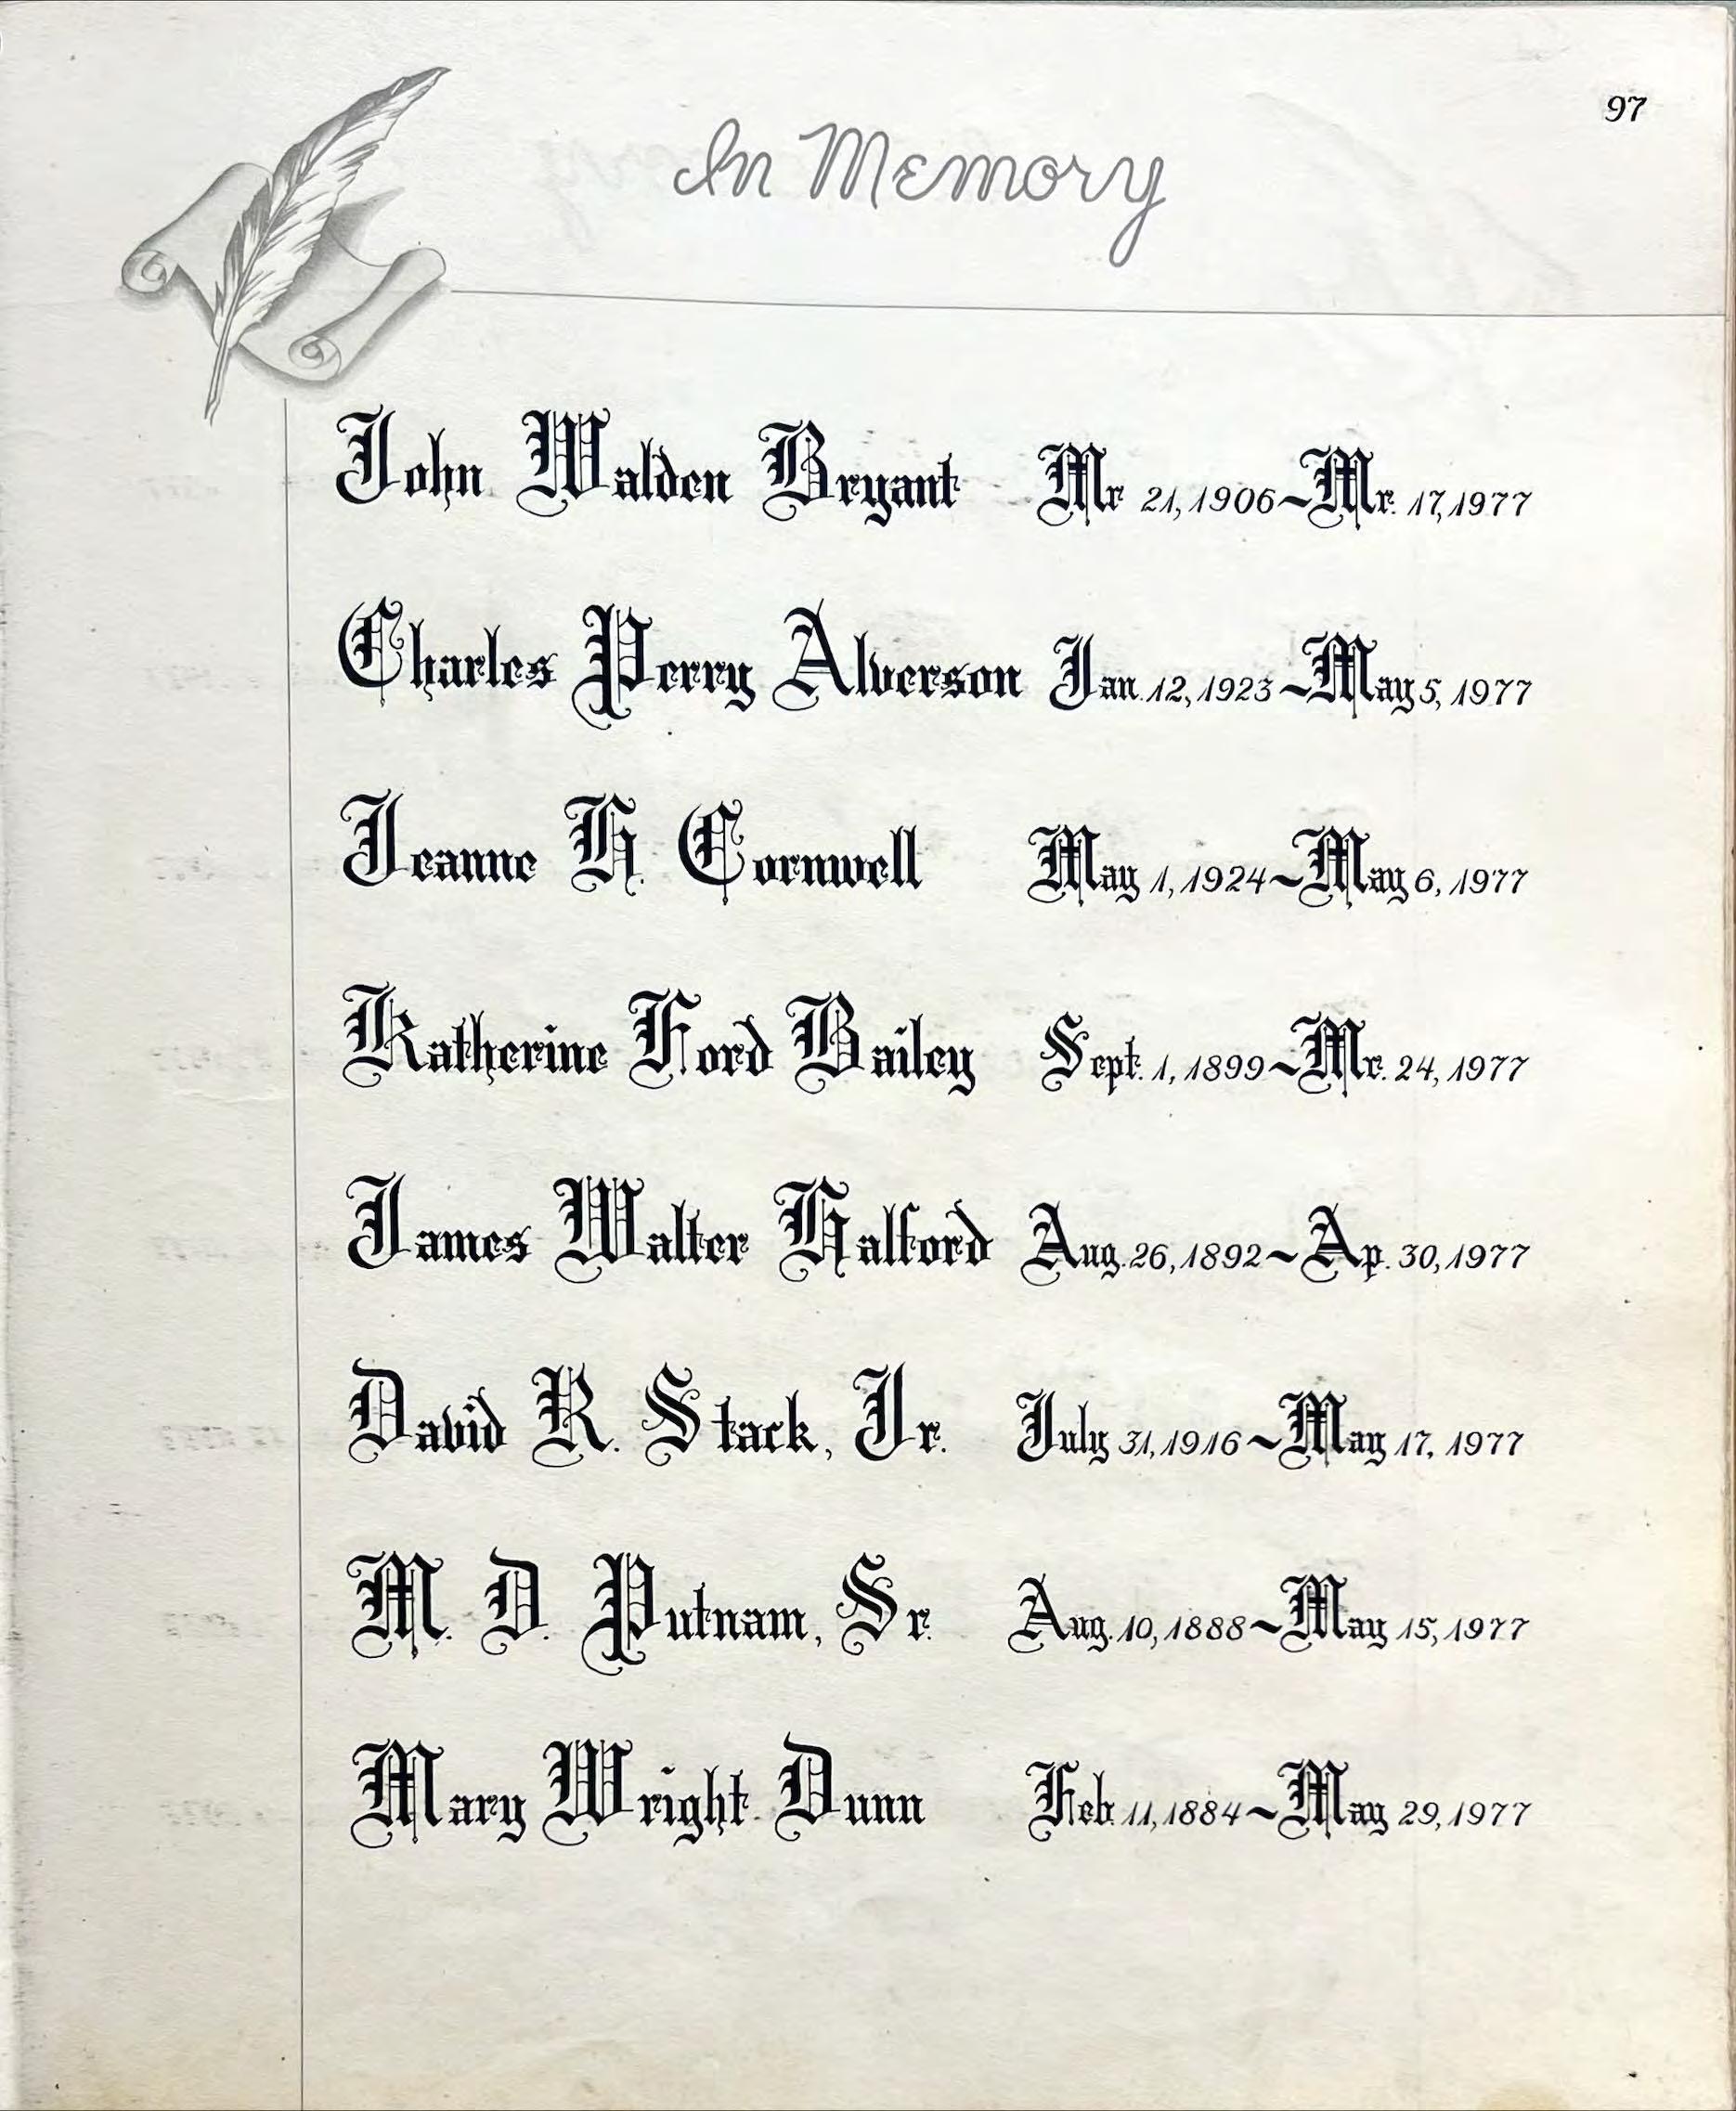 97
In Memory
John Walden Bryant Mr 21, 1906~Mr. 17, 1977
Charles Perry Alverson Jan. 12, 1923~May 5, 1977
Jeanne H. Cornwell May 1, 1924~May 6, 1977
Katherine Ford Bailey Sept. 1, 1899~Mr. 24, 1977
James Walter Halford Aug. 26, 1892~Ap. 30, 1977
David R. Stack, Jr. July 31, 1916~May 17, 1977
M. D. Putnam, Sr. Aug. 10, 1888~May 15, 1977
Mary Wright Dunn Feb. 11, 1884~May 29, 1977